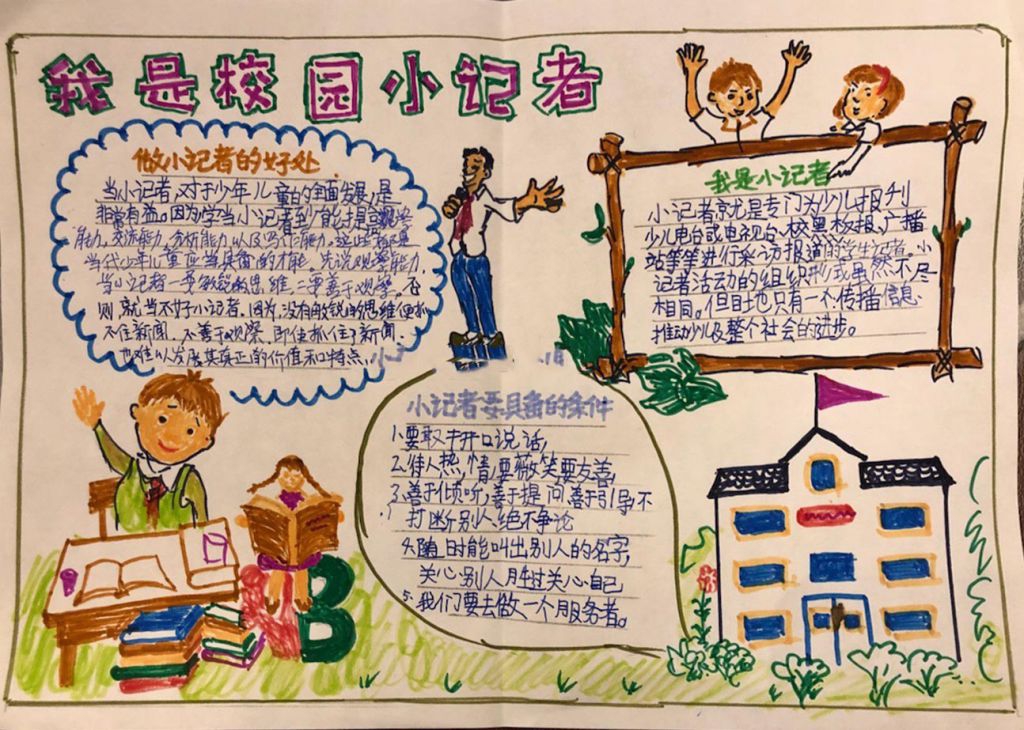 我是校园小记者
做小记者的好处
当小记者,对于少年儿童的全面发展,是
非常有益。因为学当小记者到能提高观察
能力,交流能力,分析能力,以及写作能力。这些都是
当代少年儿童应当具备的才能。先说观察能力,
当小记者一要敏锐的思维,二要善于观察。否
则,就当不好小记者,因为,没有敏锐的思维便抓
不住新闻,不善于观察,即使抓住了新闻,
也难以发展其真正的价值和特点。
我是小记者
小记者就是专门为少儿报刊
少儿电台或电视台、校里板报、广播
站等等进行采访报道的学生记者。小
记者活动的组织形式虽然不尽
相同。但目地只有一个传播信息
推动少儿及整个社会的进步。
小记者要具备的条件
1.要敢于开口说话,
2.待人热情,要薇笑要友善,
3.善于倾听,善于提问,善于引导,不
打断别人绝不争论
4.随时能叫出别人的名字,
关心别人胜过关心自己
5.我们要去做一个服务者。
B